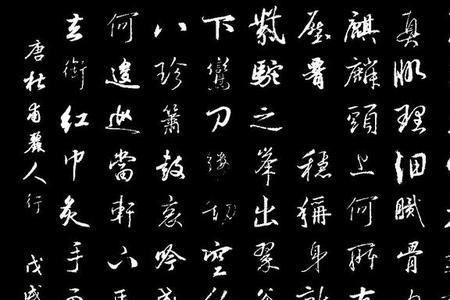 真肌理細膩骨
麒麟頭上何所
壓 穩稱身
紫駝之峯出翠
下鸞刀縷切空
八珍簫鼓哀吟
何逡巡當軒下
去銜紅巾炙手
唐杜甫麗人行 戊